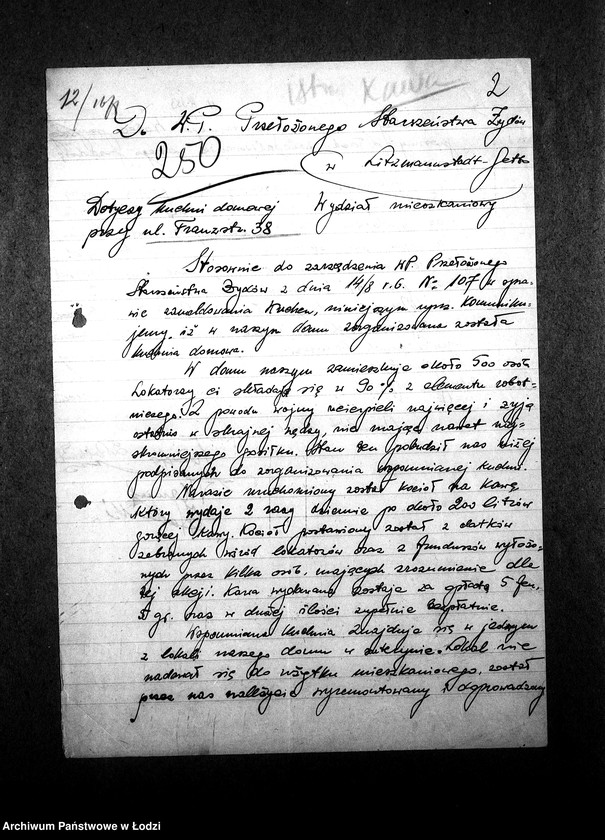 12/
2
D. W.P. Przełożonego Starszeństwa Żydów
250
w Litzmannstadt-Getto
Dotyczy kuchni domowej Wydział mieszkaniowy
przy ul. Franzstr. 38
Stosownie do zarządzenia WP. Przełożonego
Starszeństwa Żydów z dnia 14/8 r.b. Nr. 107 w spra-
wie zameldowania kuchen, niniejszym uprz. komuniku-
jemy, iż w naszym domu zorganizowana została
kuchnia domowa.
W domu naszym zamieszkuje około 500 osób
Lokatorzy ci składają się w 90% z elementu robot-
niczego. Z powodu wojny ucierpieli najwięcej i żyją
ostatnio w skrajnej nędzy, nie mając nawet naj-
skromniejszego posiłku. Stan ten pobudził nas niżej
podpisanych do zorganizowania wspomnianej kuchni.
Narazie uruchomiony został kocioł na kawę
który wydaje 2 razy dziennie po około 200 litrów
gorącej kawy. Kocioł postawiony został z datków
zebranych wśród lokatorów oraz z funduszów wyłożo-
nych przez kilka osób, mających zrozumienie dla
tej akcji. Kawa wydawana zostaje za opłatą 5 fen,
3 gr. oraz w dużej ilości zupełnie bezpłatnie.
Wspomniana kuchnia znajduje się w jednym
z lokali naszego domu w suterynie. Lokal nie
nadawał się do użytku mieszkaniowego, został
przez nas należycie wyremontowany i doprowadzony
Archiwum Państwowe w Łodzi